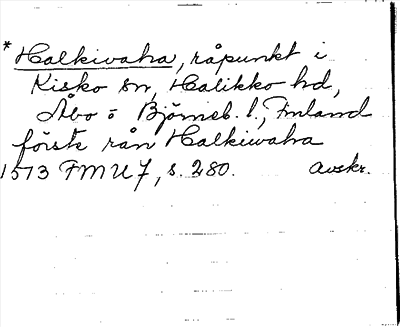 * Halkivaha, råpunkt i
Kisko sn, Halikko hd,
Åbo o Björneb. l., Finland
förste rån Halkivaha
1513 FMU 7, s. 280. Avskr.